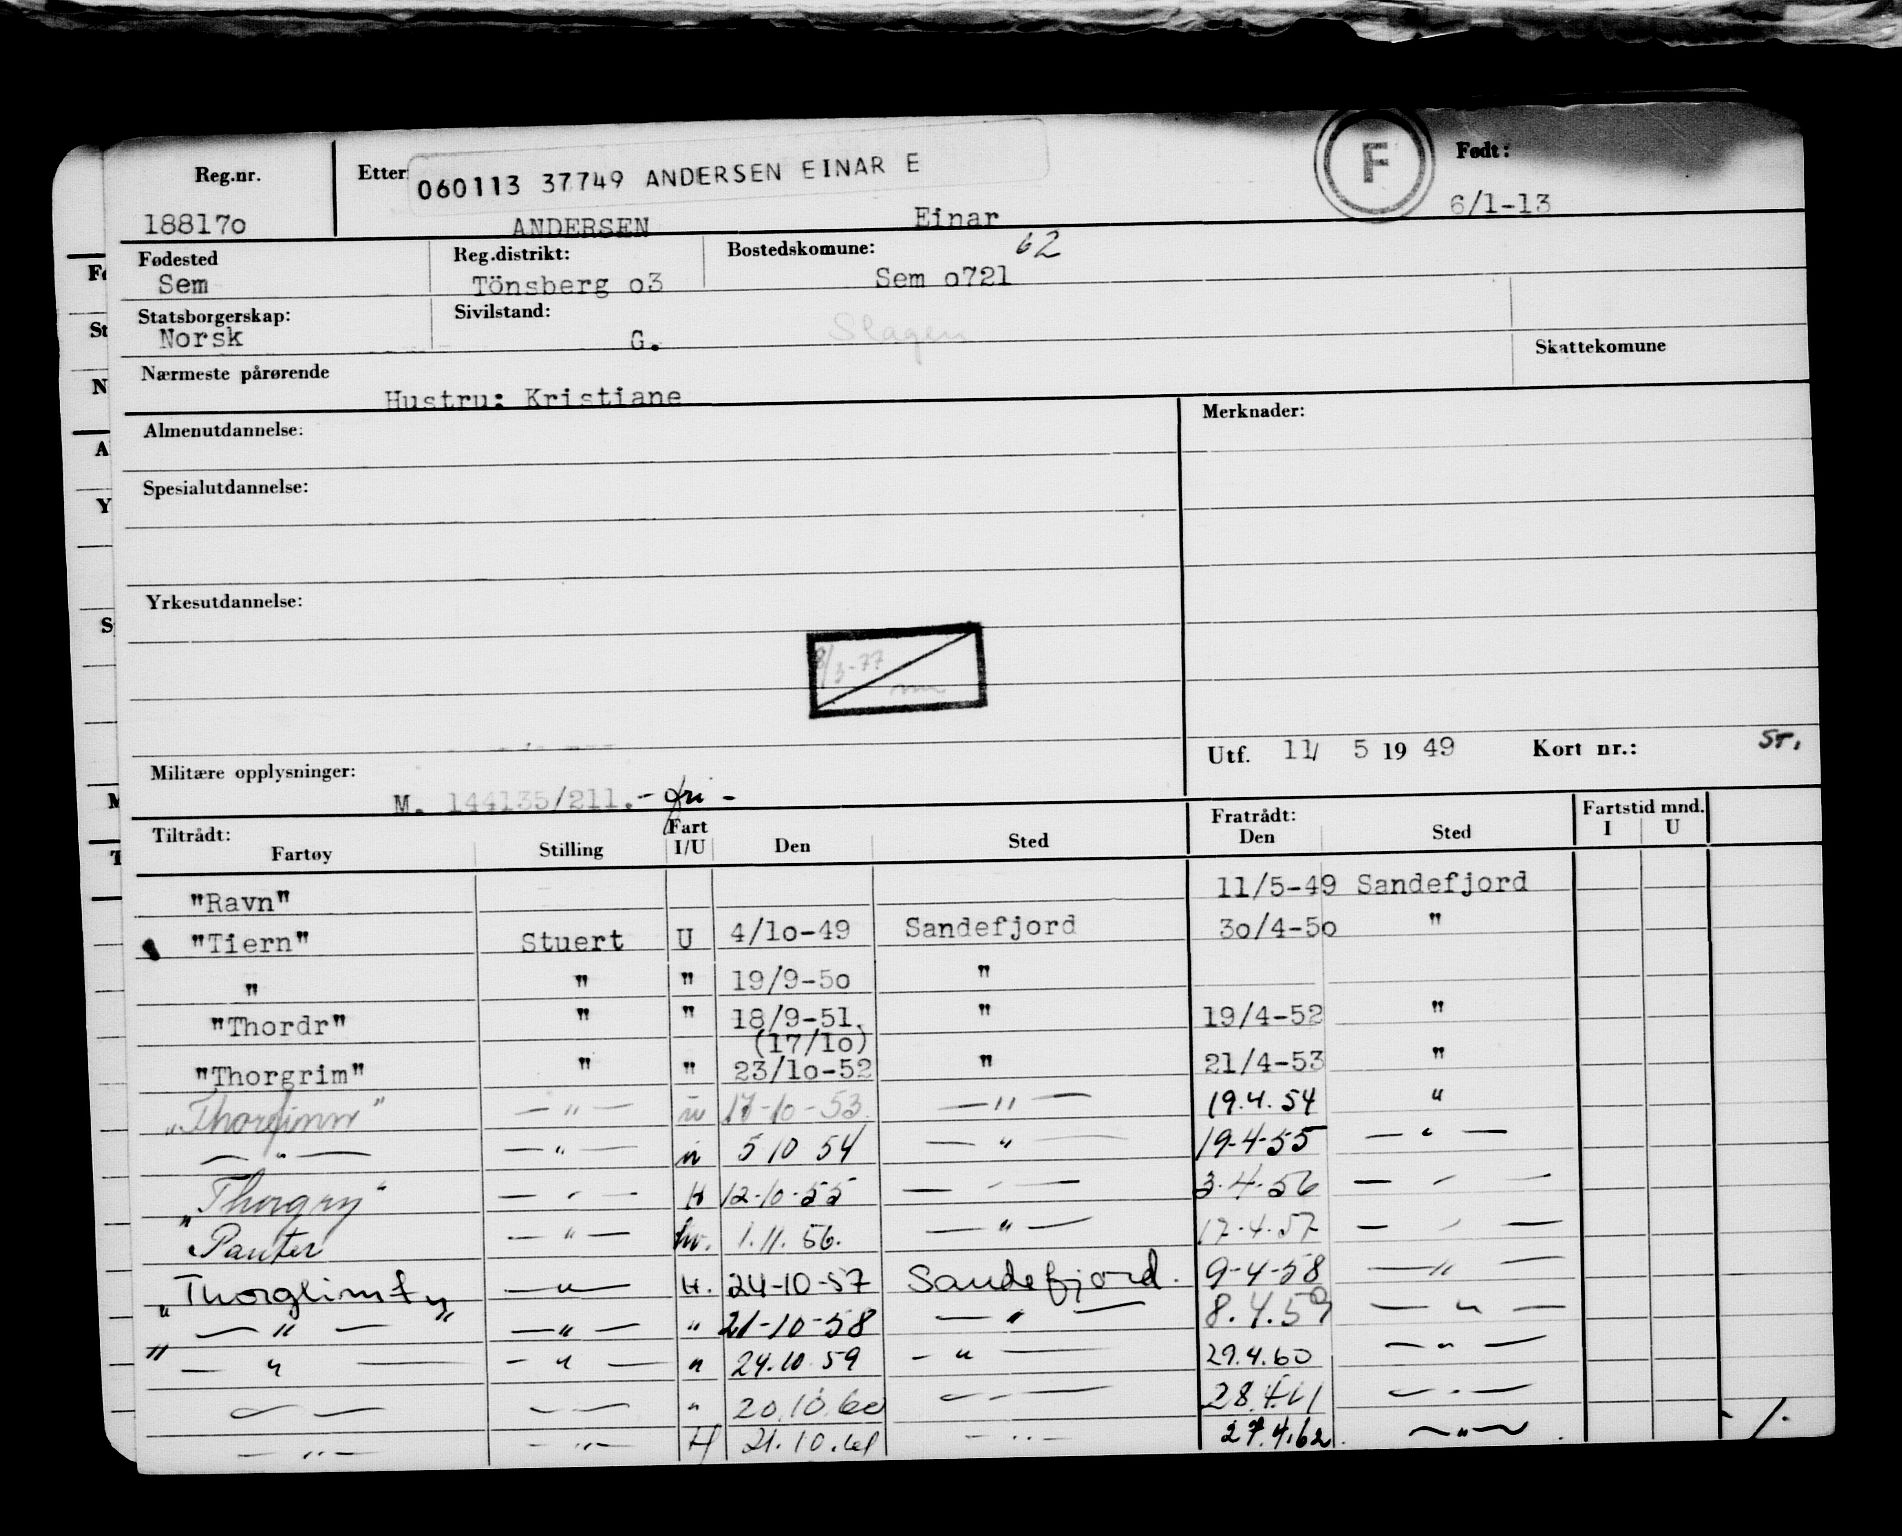 Reg.nr. Etter 060113 37749 ANDERSEN EINAR E F Født:
188170 ANDERSEN Einar 6/1-13
Fødested Reg.distrikt: Bostedskomune: 62
Sem Tönsberg o3 Sem o721
Statsborgerskap: Sivilstand:
Norsk G. Slagen
Skattekomune
Nærmeste pårørende
Hustru: Kristiane
Almenutdannelse: Merknader:
Spesialutdannelse:
Yrkesutdannelse:
8/3-77
Utf. 11/ 5 19 49 Kort nr.:
Militære opplysninger:
M. 144135/211.- fri -
Tiltrådt: Fart Fratrådt: Fartstid mnd.
Fartøy Stilling I/U Den Sted Den Sted I U
"Ravn" 11/5-49 Sandefjord
"Tiern" Stuert U 4/1o-49 Sandefjord 3o/4-5o "
" " " 19/9-5o "
"Thordr" " " 18/9-51. " 19/4-52 "
(17/1o)
"Thorgrim" " " 23/1o-52 " 21/4-53 "
"Thorfinn" — " — u 17-10-53. — " — 19.4.54 "
— " — — " — u 5 10 54 — " — 19-4-55 — " —
"Thorgry" — " — H 12-10-55 — " — 3.4.56 — " —
"Panter — " — hv. 1.11.56. — " — 17.4.57 — " —
"Thorglimt" — " — H. 24-10-57 Sandefjord. 9-4-58 — " —
— " — — " — " 21-10-58 — " — 8.4.59 — " —
" — " — — " — " 24.10.59 — " — 29.4.60 — " —
— " — — " — " 20.10.60 — " — 28.4.61 — " —
— " — — " — H 21.10.61 — " — 27.4.62. — " —